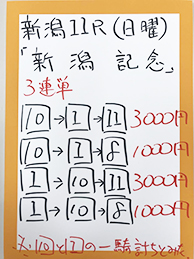 新潟11R(日曜)
「新潟記念」
3連単
10→1→11 3000円
10→1→8 1000円
1→10→11 3000円
1→10→8 1000円
※10と1の一騎討ちとみた